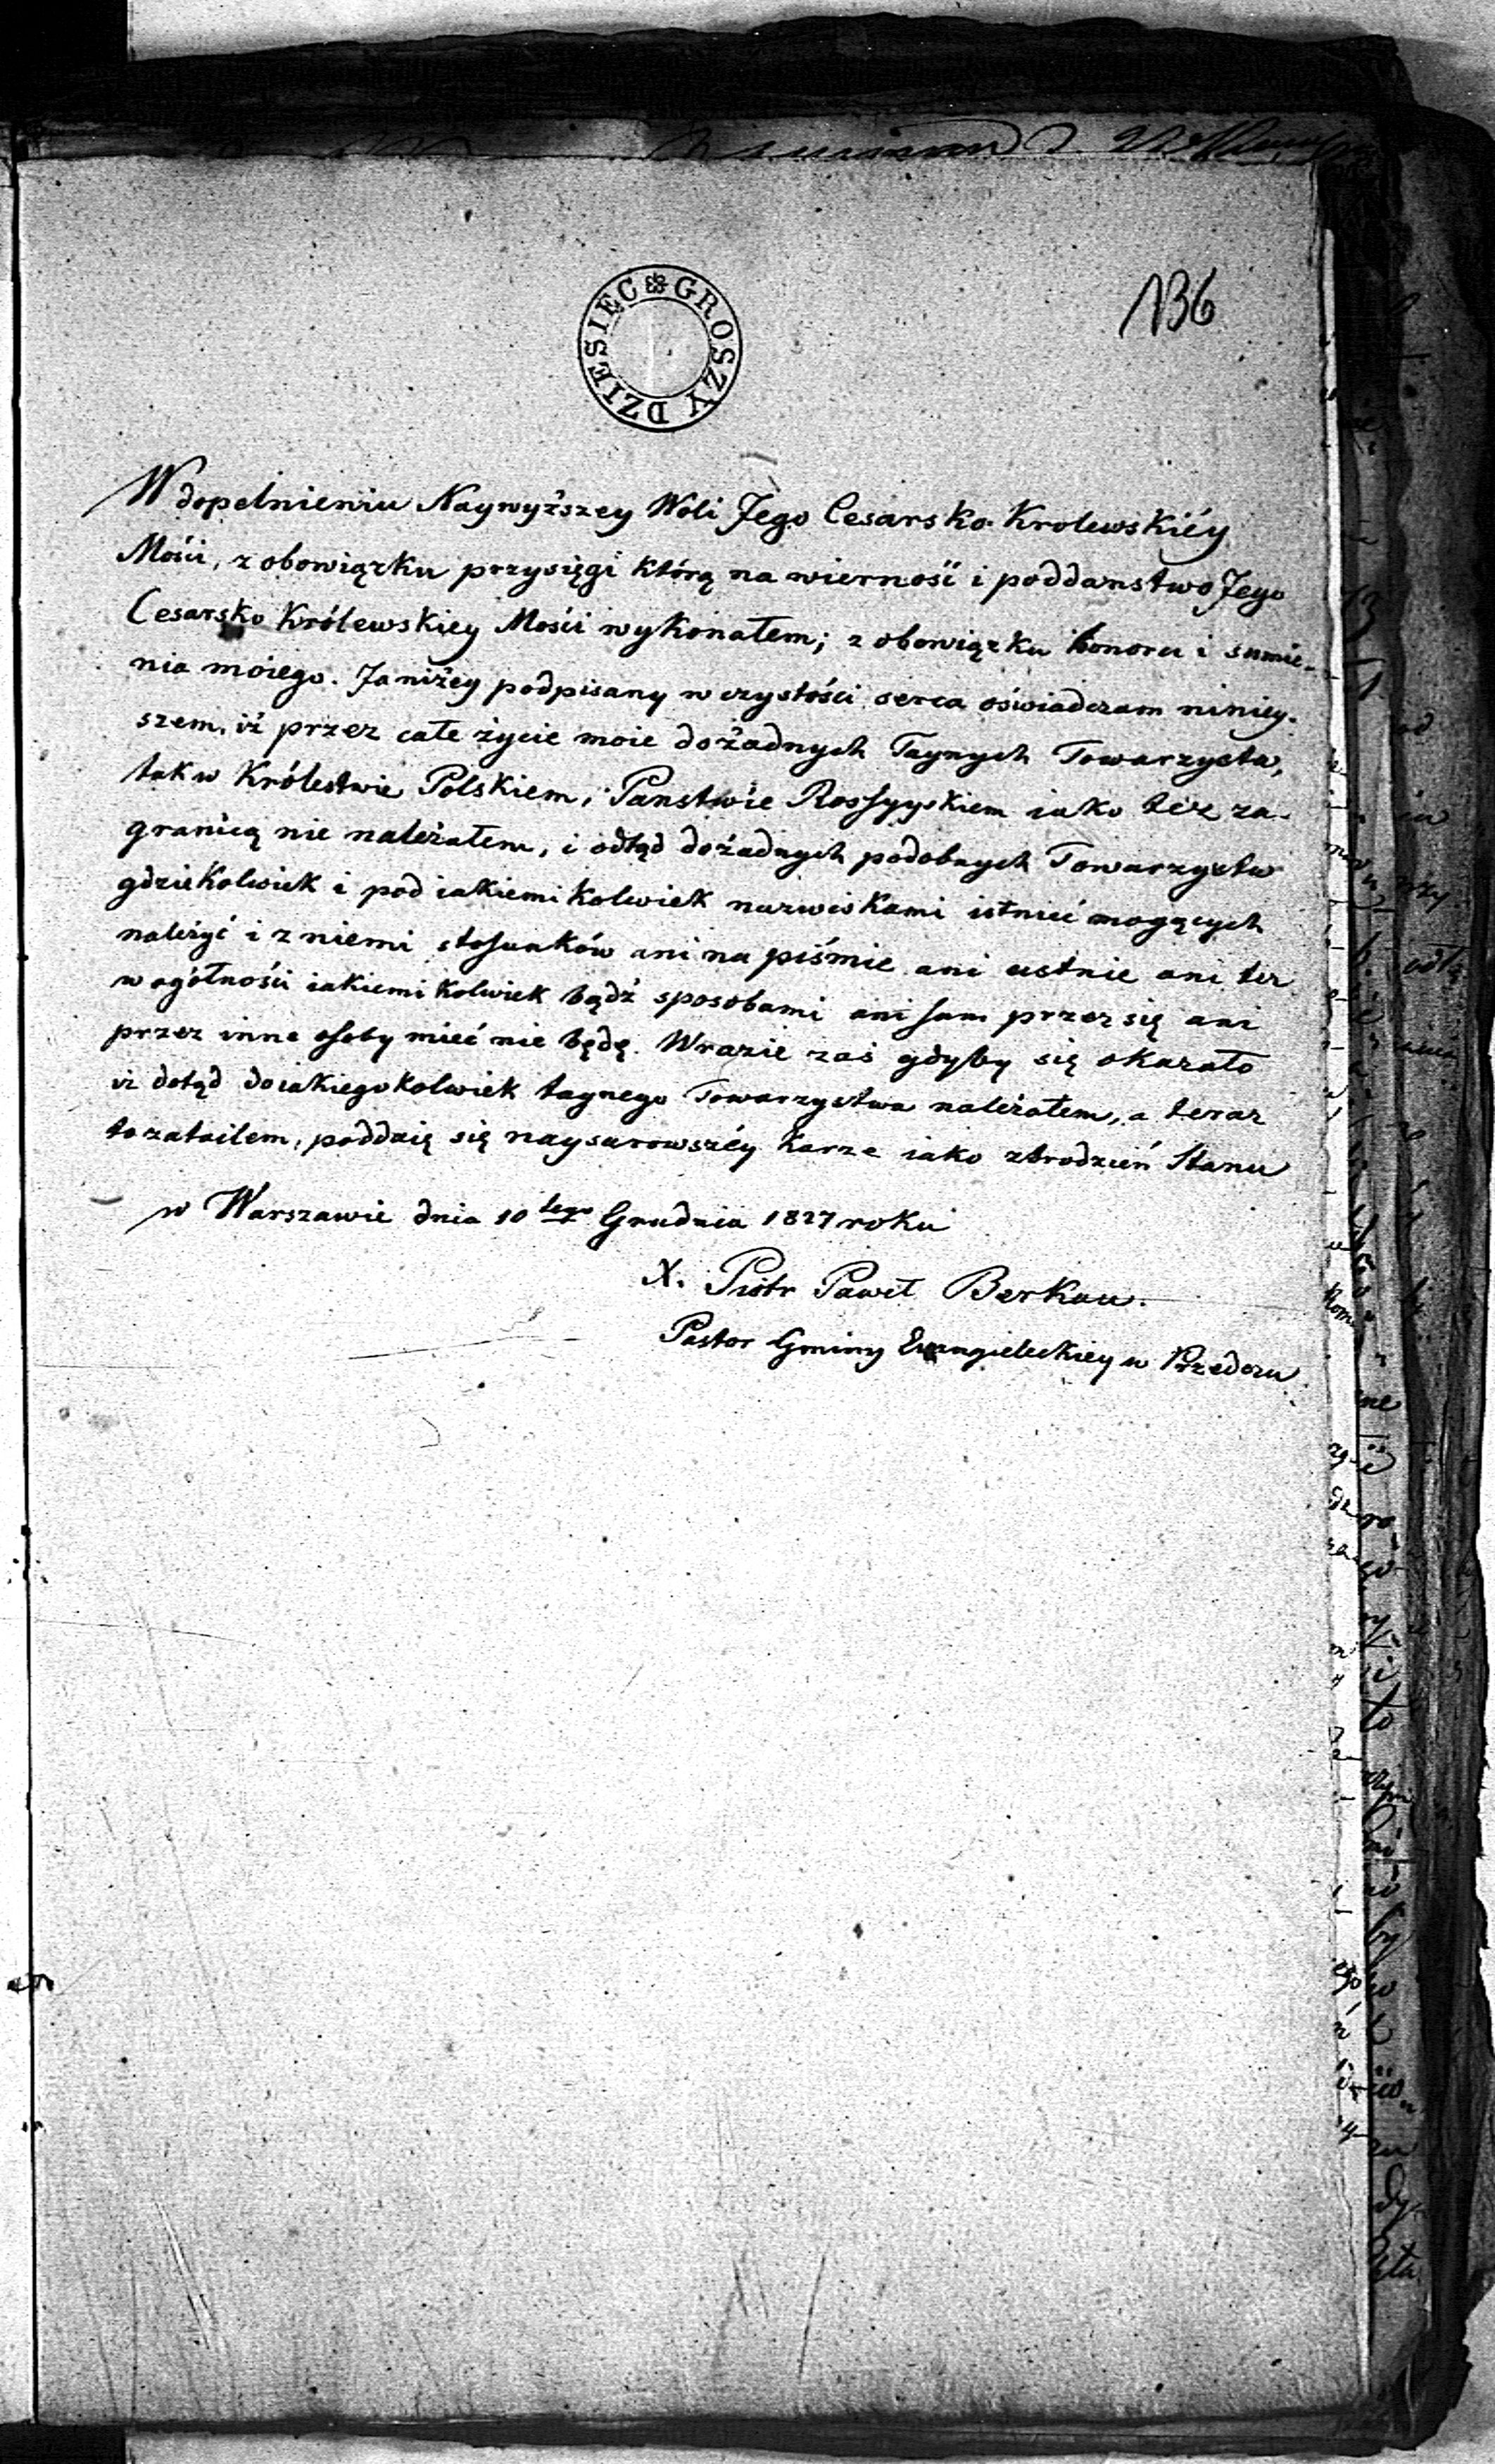 GROSZY DZIESIĘC
136
W dopełnieniu Naywyższey Woli Jego Cesarsko Krolewskiéy
Mości, z obowiązku przysięgi którą na wierność i poddaństwo Jego
Cesarsko Królewskiey Mości wykonałem; z obowiązku honoru i sumie-
nia moiego. Ja niżey podpisany w czystości serca oświadczam niniey-
szem, iż przez całe życie moie do żadnych Taynych Towarzystw,
tak w Królestwie Polskiem, Panstwie Rossyyskiem iako też za-
granicą nie należałem, i odtąd do żadnych podobnych Towarzystw
gdziekolwiek i pod iakiemikolwiek nazwiskami istnieć mogących
należyć i z niemi stosunków ani na piśmie ani ustnie ani też
w ogólności iakiemikolwiek bądź sposobami ani sam przez się ani
przez inne osoby mieć nie będę. W razie zaś gdyby się okazało
iż dotąd do iakiegokolwiek taynego Towarzystwa należałem, a teraz
to zataiłem, poddaię się naysurowszéy karze iako zbrodzień Stanu
w Warszawie dnia 10 tego Grudnia 1827 roku
X. Piotr Paweł Berkau.
Pastor Gminy Ewangielickiey w Przedczu